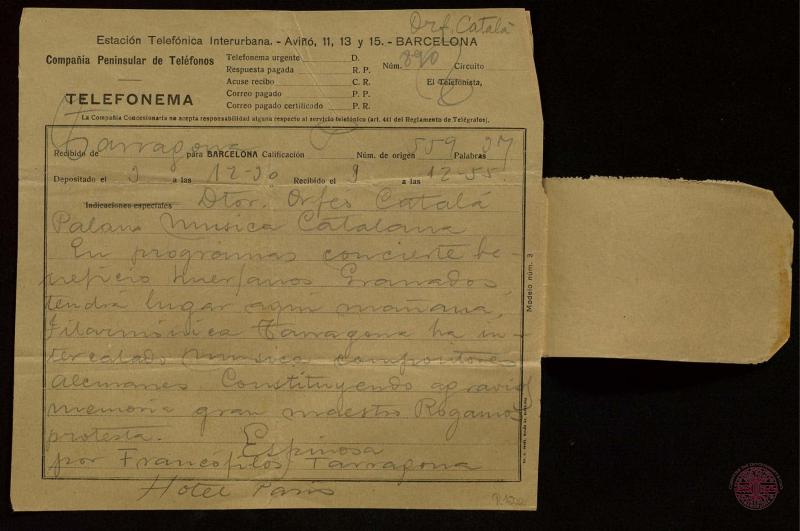 Orf. Catalá
Estación Telefónica Interurbana. - Aviñó, 11, 13 y 15. - BARCELONA
Compañia Peninsular de Teléfonos
Telefonema urgente D.
Respuesta pagada R. P.
Acuse recibo C. R.
Correo pagado P. P.
Correo pagado certificado P. R.
Núm. 890 Circuito
El Telefonista,
TELEFONEMA
La Compañía Concesionaria no acepta responsabilidad alguna respecto al servicio telefónico (art. 441 del Reglamento de Telégrafos).
Recibido de Tarragona para BARCELONA Calificación Núm. de origen 559 Palabras 37
Depositado el 9 a las 12-30 Recibido el 9 a las 12-55
Indicaciones especiales Dtor. Orfeo Catalá
Palau Musica Catalana
En programas concierte be-
neficio huerfanos Granados
tendrá lugar aqui mañana,
Filarmónica Tarragona ha in-
tercalado musica compositores
alemanes. Constituyendo agravio
memoria gran maestro Rogamos
protesta.
Espinosa
por Francófilos Tarragona
Hotel Paris
Modelo núm. 3